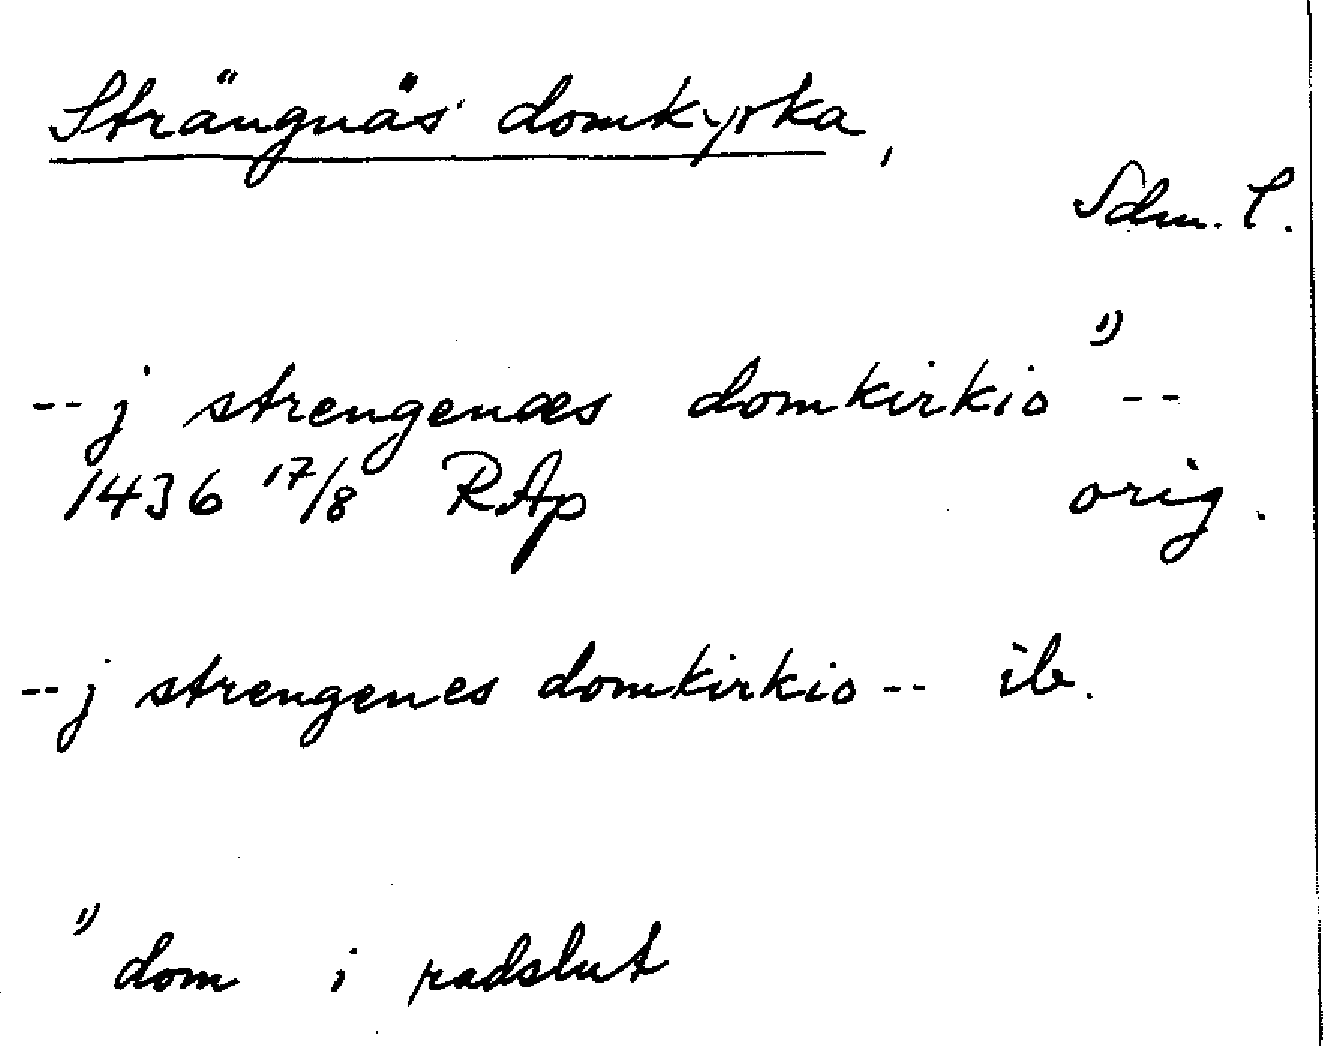 Strängnäs domkyrka,
Sdm. l.
-- j strengenæs domkirkio ¹) --
1436 17/8 RAp orig.
-- j strengenes domkirkio -- ib.
¹) dom i radslut